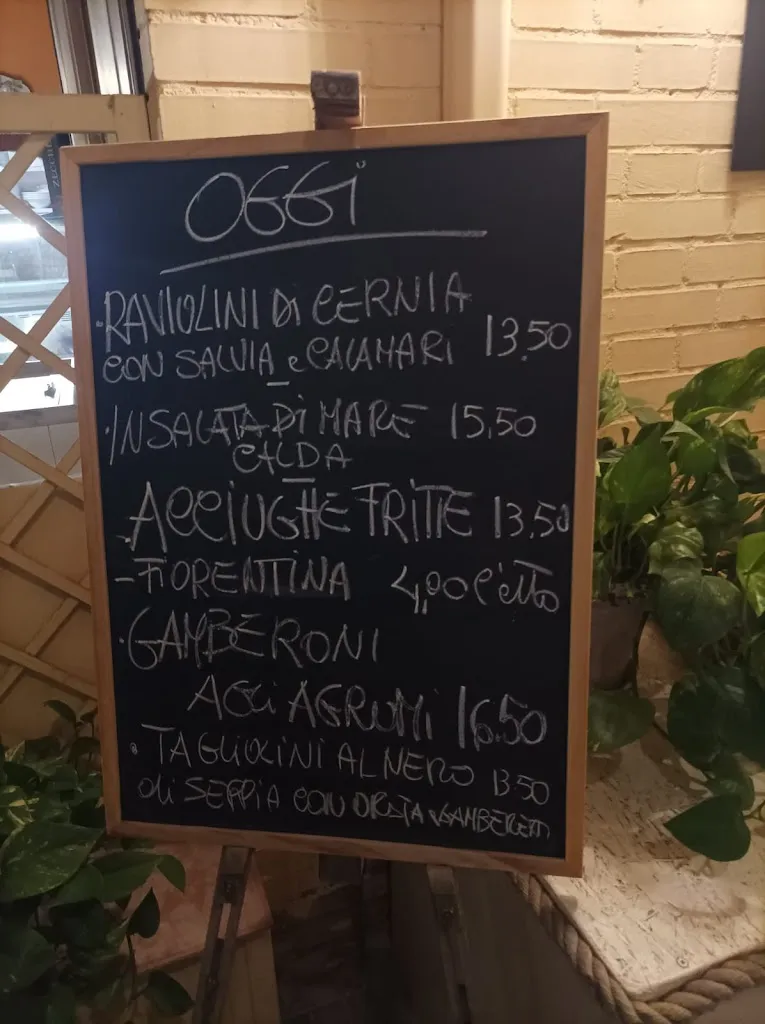 OGGI
·RAVIOLINI Di CERNIA
CON SALVIA e CALAMARI 13.50
·INSALATA DI MARE 15,50
CALDA
-ACCIUGHE FRITTE 13.50
-FIORENTINA 4,00 l'etto
·GAMBERONI
AGLi AGRUMI 16.50
·TAGLIOLINI AL NERO 13.50
di SEPPIA CON ORATA e GAMBERETTI